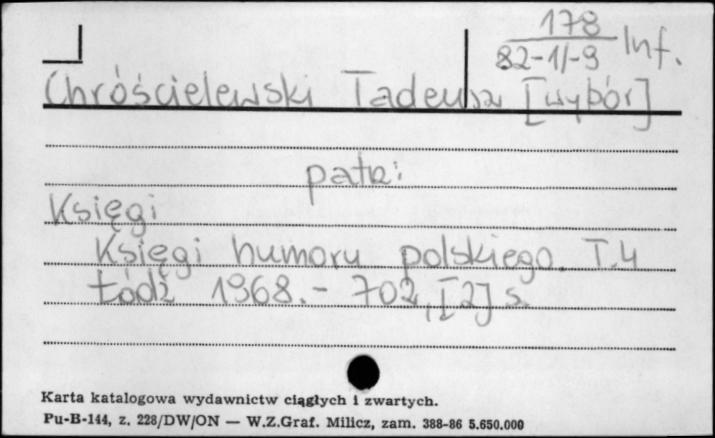 178
82-1/-9 Inf.
Chróścielewski Tadeusz [wybór]
patrz:
Księgi
Księgi humoru polskiego. T.4
Łódź 1968.- 702,[2] s.
Karta katalogowa wydawnictw ciągłych i zwartych.
Pu-B-144, z. 228/DW/ON — W.Z.Graf. Milicz, zam. 388-86 5.650.000